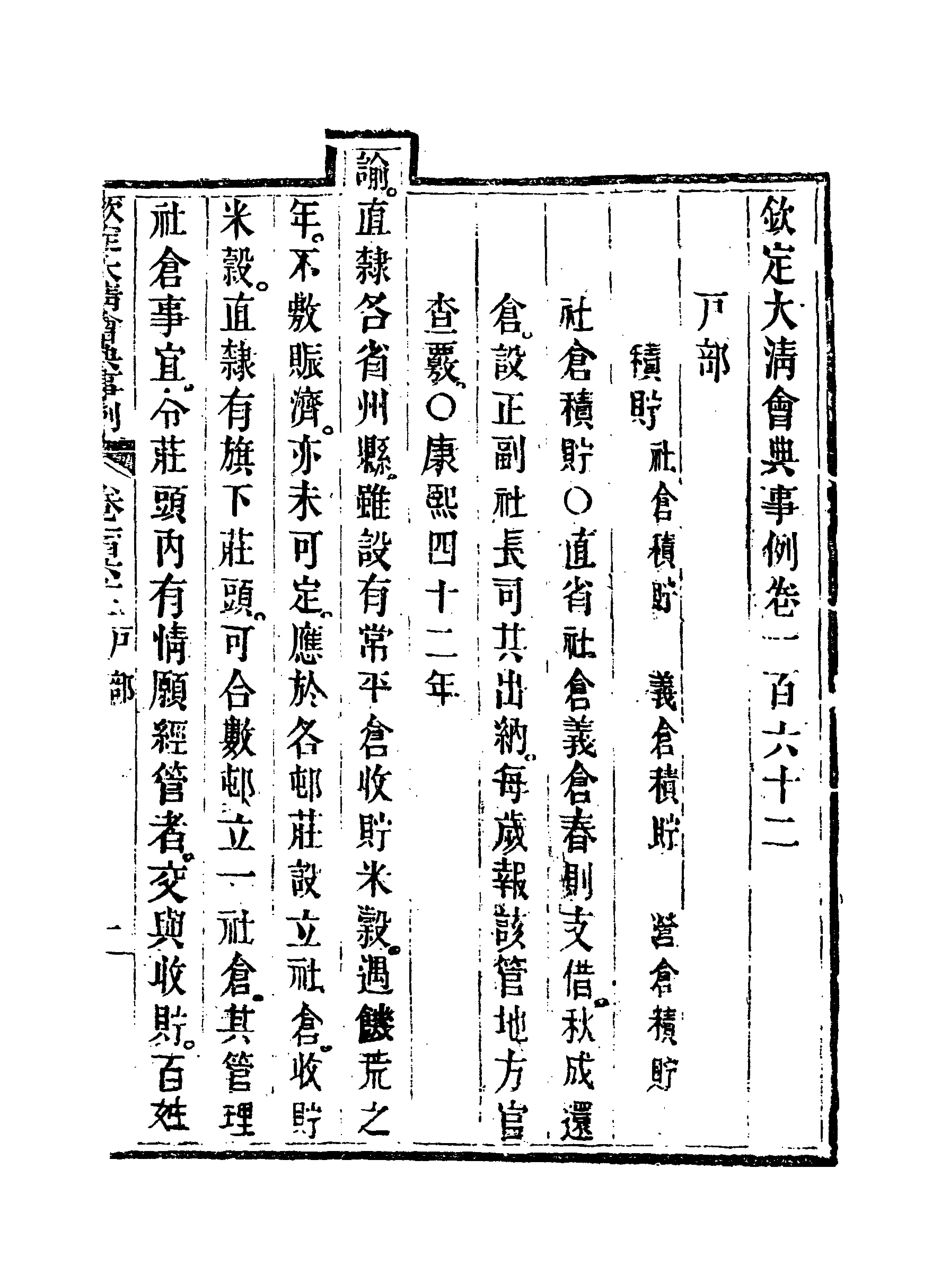 欽定大淸會典事例卷一百六十二
戸部
積貯 社倉積貯 義倉積貯 營倉積貯
社倉積貯〇直省社倉義倉春則支借。秋成還
倉。設正副社長司其出納。每歲報該管地方官
查覈。〇康熙四十二年
諭。直隸各省州縣。雖設有常平倉收貯米穀。遇饑荒之
年。不敷賑濟。亦未可定。應於各邨莊設立社倉。收貯
米穀。直隸有旗下莊頭。可合數邨立一社倉。其管理
社倉事宜。令莊頭內有情願經管者。交與收貯。百姓
欽定大淸會典事例 卷一百六十二 戸部 二